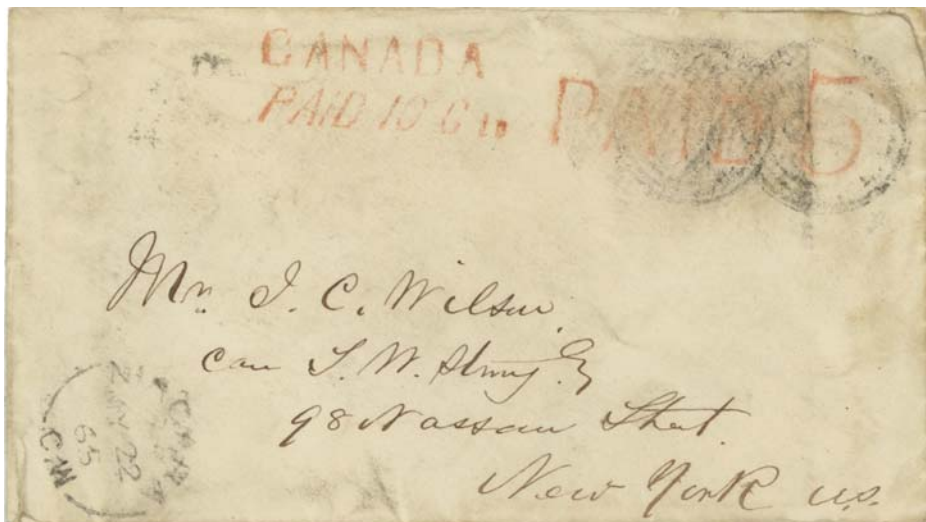 CANADA
PAID 10 Cts PAID 5
Mr. J. C. Wilson
care T. W. Strong Esq
98 Nassau Street.
New York U.S.
MY 22
65
C.W